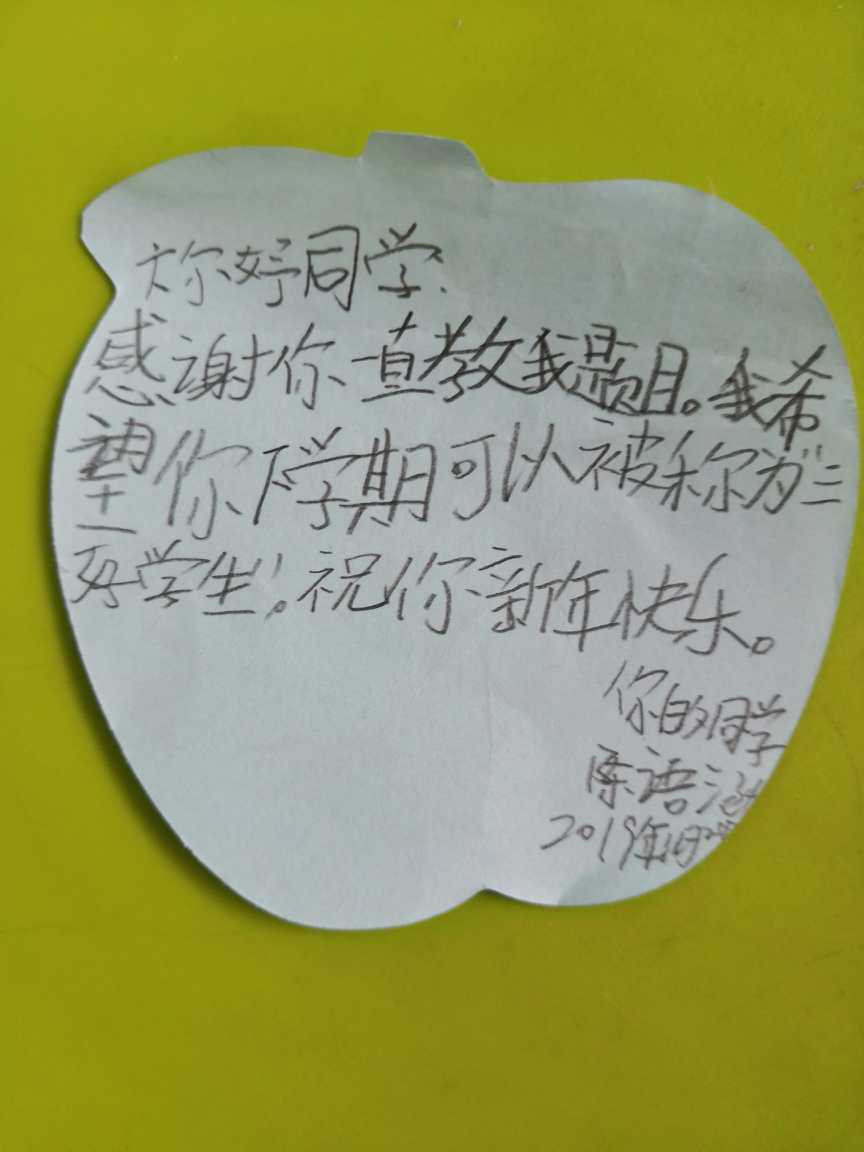 你好同学:
感谢你一直教我题目。我希
望你下学期可以被称为“三
好学生”。祝你新年快乐。
你的同学
陈语涵
2019年